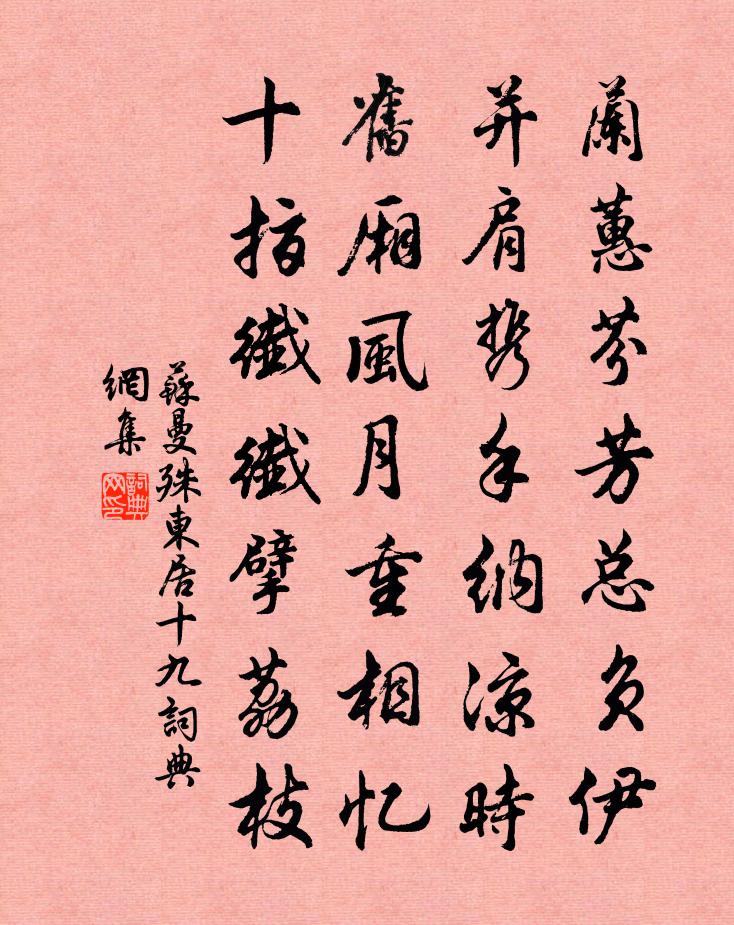 蘭蕙芬芳总負伊
并肩携手納凉時
舊廂風月重相忆
十指纖纖擘荔枝
蘇曼殊東居十九詞典
網集
詞典網印